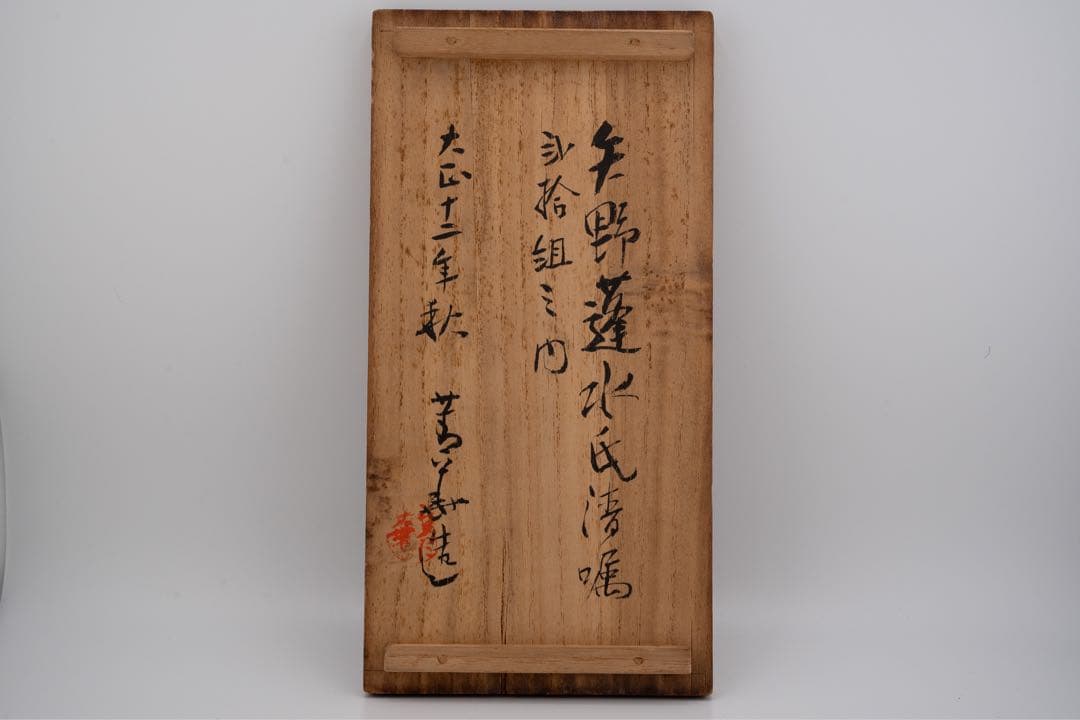 矢野蓬水氏清嘱
弐拾組之内
大正十二年秋 造